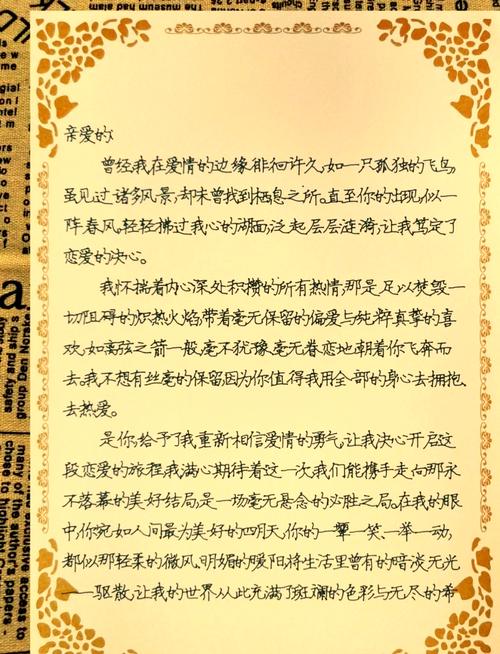 亲爱的:
曾经我在爱情的边缘徘徊许久,如一只孤独的飞鸟,
虽见过诸多风景,却未曾找到栖息之所。直至你的出现,似一
阵春风,轻轻拂过我心的湖面,泛起层层涟漪,让我笃定了
恋爱的决心。
我怀揣着内心深处积攒的所有热情,那是足以焚毁一
切阻碍的炽热火焰,带着毫无保留的偏爱与纯粹真挚的喜
欢,如离弦之箭一般,毫不犹豫、毫无眷恋地朝着你飞奔而
去。我不想有丝毫的保留,因为你值得我用全部的身心去拥抱、
去热爱。
是你,给予了我重新相信爱情的勇气,让我决心开启这
段恋爱的旅程。我满心期待着这一次我们能携手走向那永
不落幕的美好结局,是一场毫无悬念的必胜之局。在我的眼
中,你宛如人间最为美好的四月天,你的一颦一笑、一举一动,
都似那轻柔的微风,明媚的暖阳,将生活里曾有的暗淡无光
一一驱散,让我的世界从此充满了斑斓的色彩与无尽的希
the museum had
safety and ship's
group Den Norske
many of the
chose to highlight
the author's
papers -
a